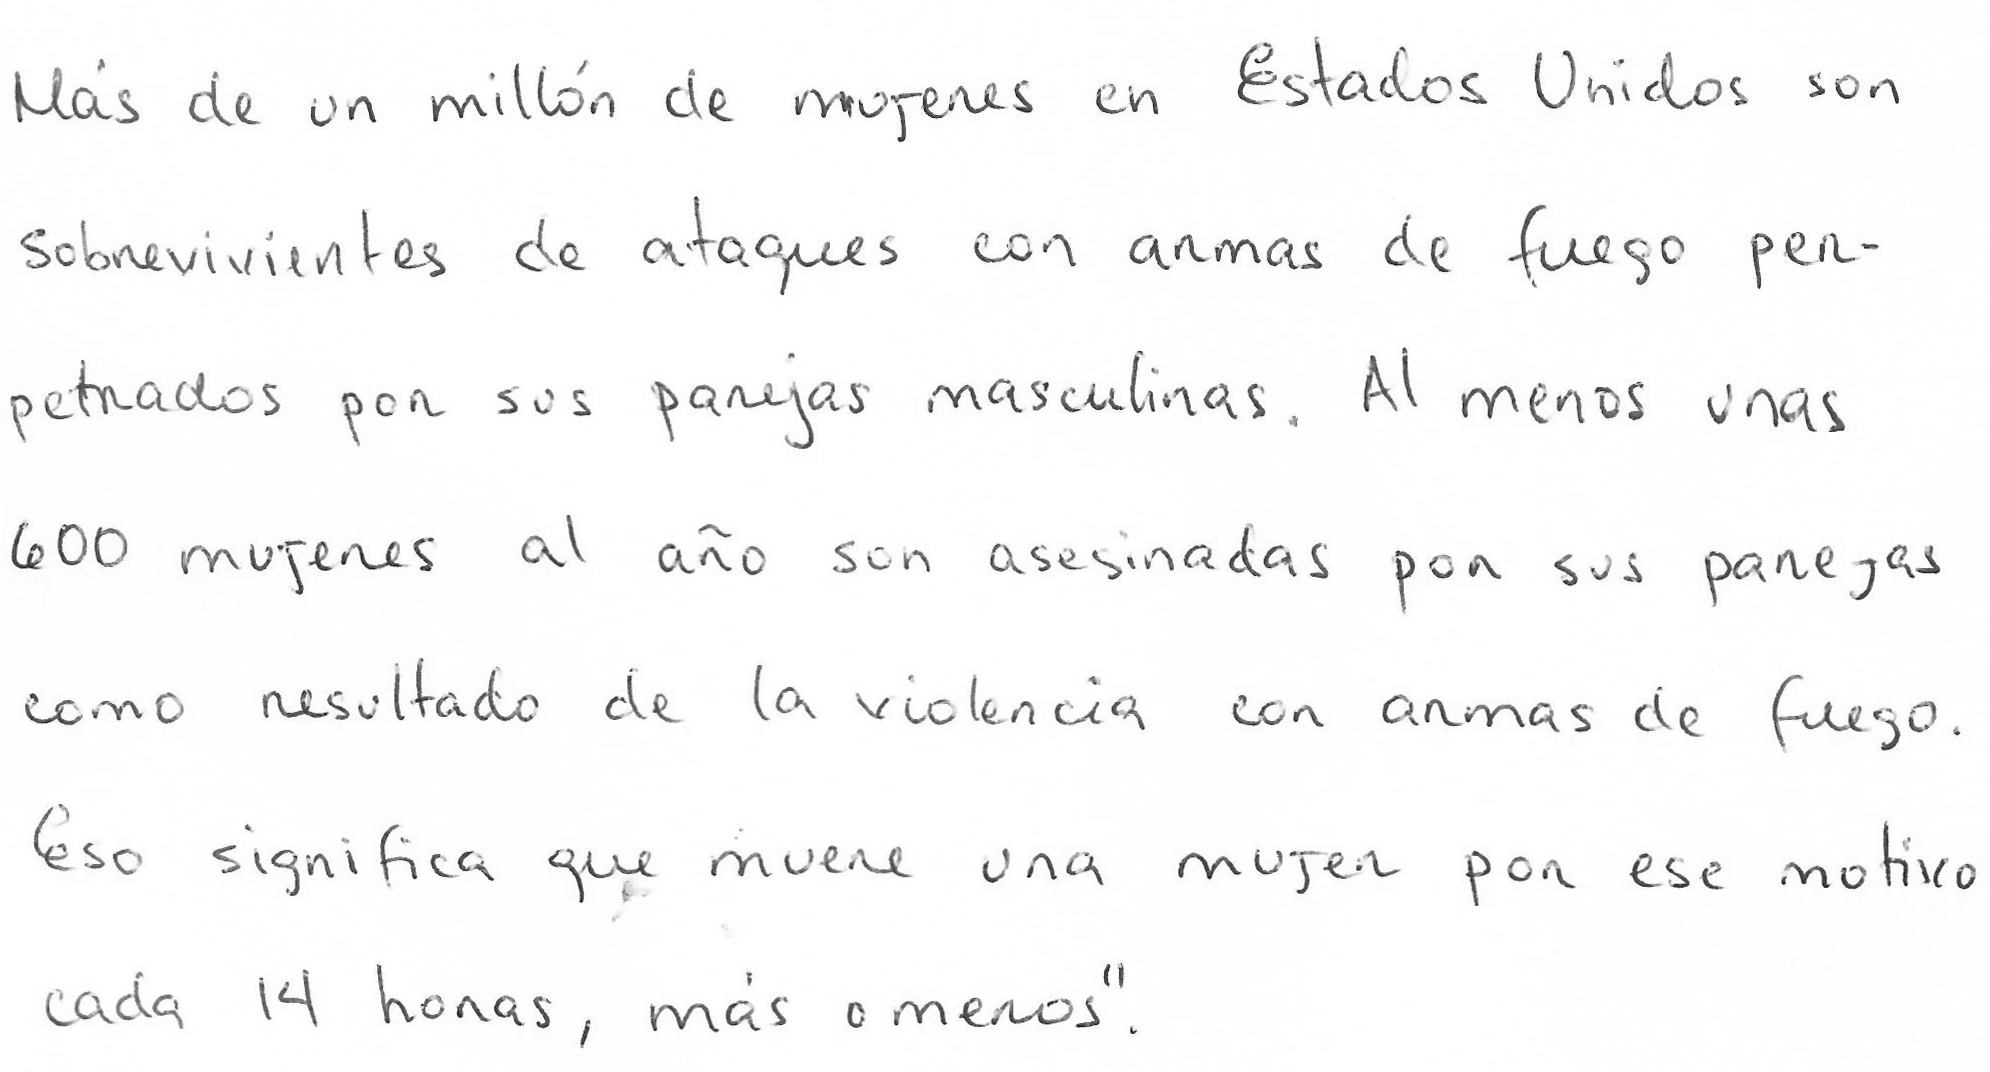 Más de un millón de mujeres en Estados Unidos son
sobrevivientes de ataques con armas de fuego per-
petrados por sus parejas masculinas. Al menos unas
600 mujeres al año son asesinadas por sus parejas
como resultado de la violencia con armas de fuego.
Eso significa que muere una mujer por ese motivo
cada 14 horas, más o menos".